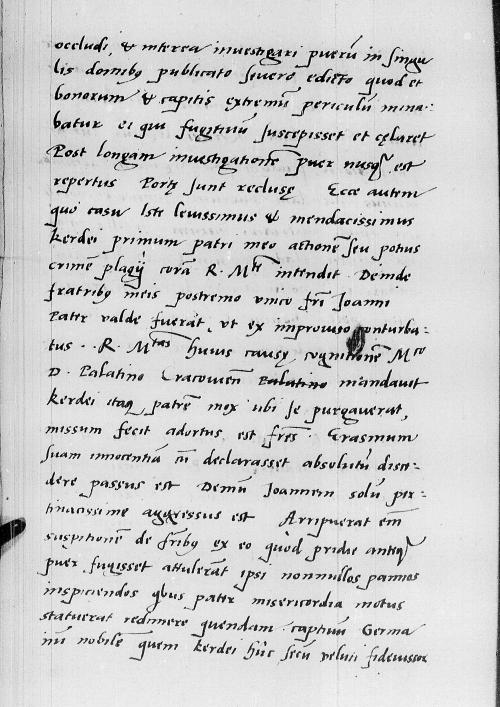 occludi, & interea investigari puerū in singu
lis domibq publicato severo edicto quod et
bonorum & capitis extremū periculū mina-
batur ei qui fugitivū suscepisset et cęlaret
Post longam investigationē puer nusq̄ est
repertus Portę sunt reclusę Ecce autem
quo casu Iste levissimus & mendacissimus
kerdei primum patri meo actionē seu potius
crimē plagij corā R. Mte intendit. Deinde
fratribq meis postremo unico fri Joanni
Pater valde fuerat, ut ex improviso conturba-
tus . R. Mtas huius causę cognitionē Mco
D. Palatino Cracovien̄ mandavit
kerdei itaq patrē mox ubi se purgaverat,
missum fecit adortus est frēs. Erasmum
suam innocentiā cū declarasset absolutū disce-
dere passus est Demū Joannem solū per-
tinacissime aggressus est Arripuerat em̄
suspitionē de frībq ex eo quod pridie anteq̄
puer fugisset attulerāt ipsi nonnullos pannos
inspiciendos qbus pater misericordia motus
statuerat redimere quendam captivū Germa
nū nobilē quem kerdei huc secū veluti fideiussor